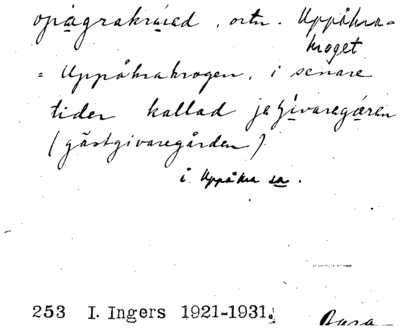 opågrakråed, ortn. Uppåkra-
kroget
= Uppåkrakrogen, i senare
tider kallad jeʃivaregåren
(gästgivaregården)
i Uppåkra sn.
253 I. Ingers 1921-1931.